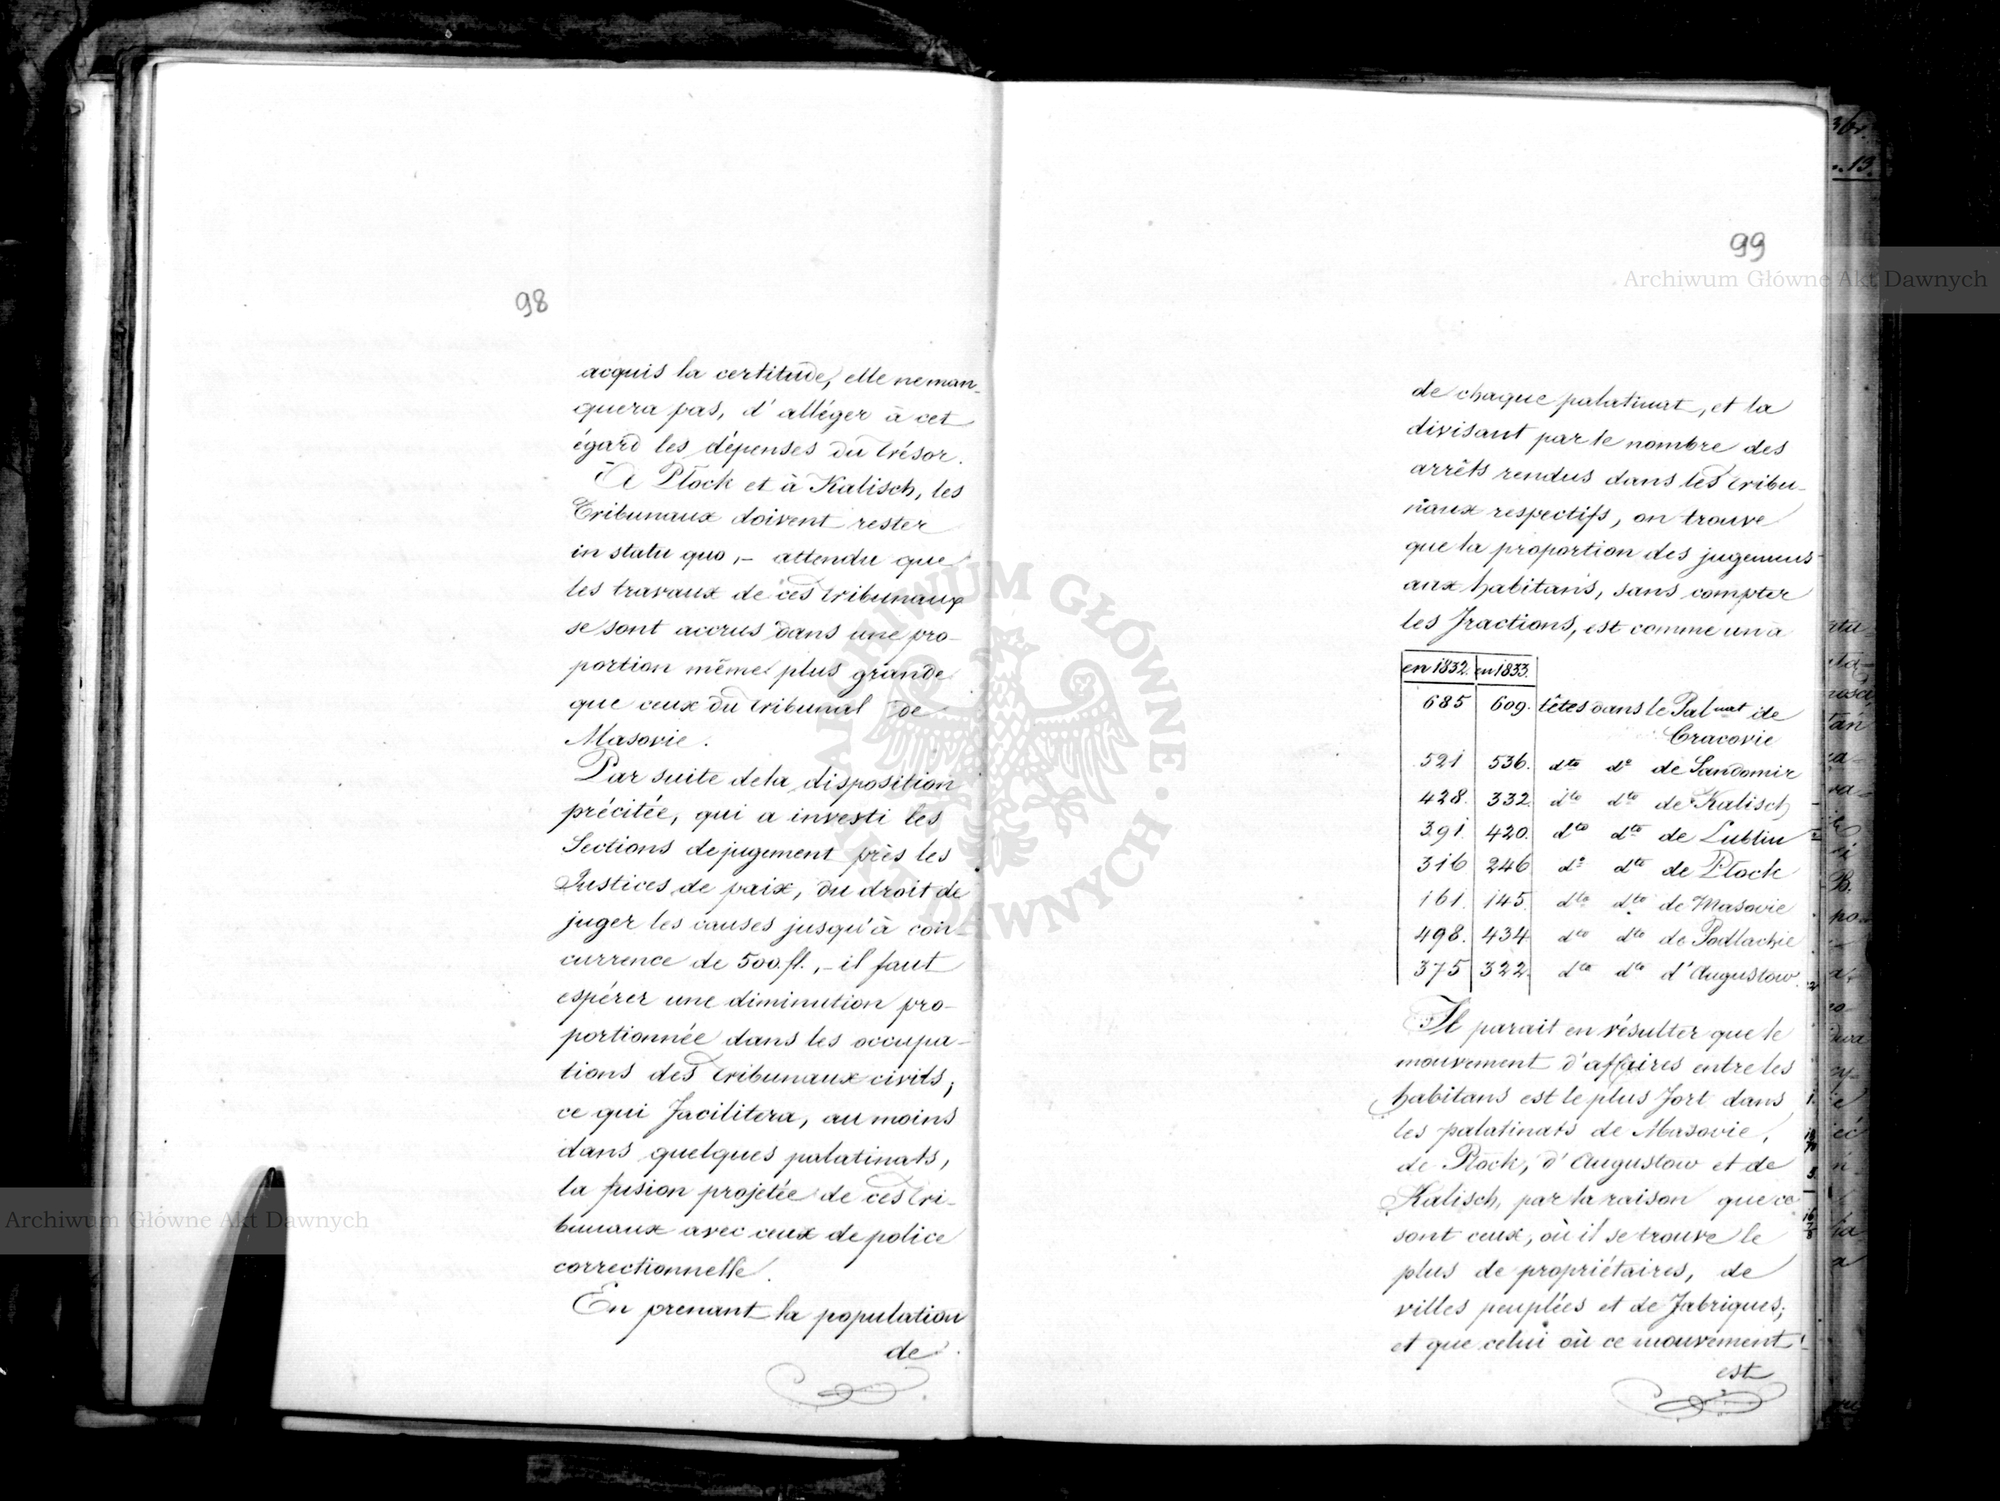 98
acquis la certitude, elle ne man-
quera pas, d'alléger à cet
égard les dépenses du trésor.
À Płock et à Kalisch, les
Tribunaux doivent rester
in statu quo, – attendu que
les travaux de ces tribunaux
se sont accrus dans une pro-
portion même plus grande
que ceux du tribunal de
Masovie.
Par suite de la disposition
précitée, qui a investi les
Sections de jugement près les
Justices de paix, du droit de
juger les causes jusqu'à con-
currence de 500 fl., – il faut
espérer une diminution pro-
portionnée dans les occupa-
tions des tribunaux civils,
ce qui facilitera, au moins
dans quelques palatinats,
la fusion projetée de ces tri-
bunaux avec ceux de police
correctionnelle.
En prenant la population
de
99
de chaque palatinat, et la
divisant par le nombre des
arrêts rendus dans les tribu-
naux respectifs, on trouve
que la proportion des jugemens
aux habitans, sans compter
les fractions, est comme un à
en 1832. en 1833.
685 609. têtes dans le Pal.nat de
Cracovie
521 536. dto do de Sandomir
428. 332. dto dto de Kalisch
391. 420. dto dto de Lublin
316 246 do dto de Płock
161. 145. dto dto de Masovie
498. 434 dto dto de Podlachie
375 322. dto dto d'Augustow.
Il parait en résulter que le
mouvement d'affaires entre les
habitans est le plus fort dans
les palatinats de Masovie,
de Płock, d'Augustow et de
Kalisch, par la raison que ce
sont ceux, où il se trouve le
plus de propriétaires, de
villes peuplées et de fabriques;
et que celui où ce mouvement
est
Archiwum Główne Akt Dawnych
Archiwum Główne Akt Dawnych
ARCHIWUM GŁÓWNE AKT DAWNYCH